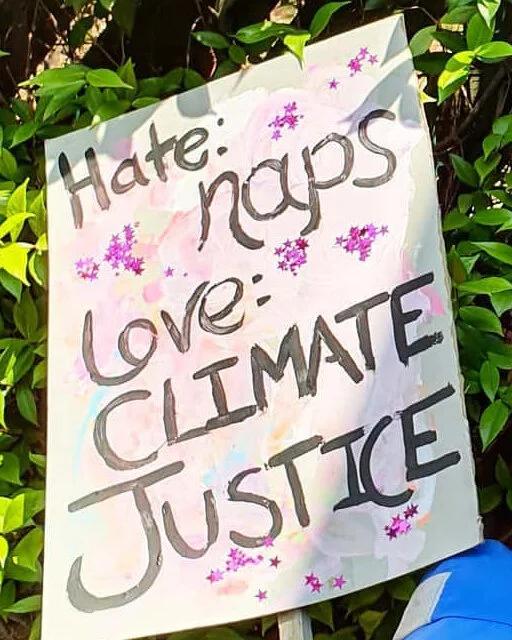 Hate:
naps
Love:
CLIMATE
JUSTICE